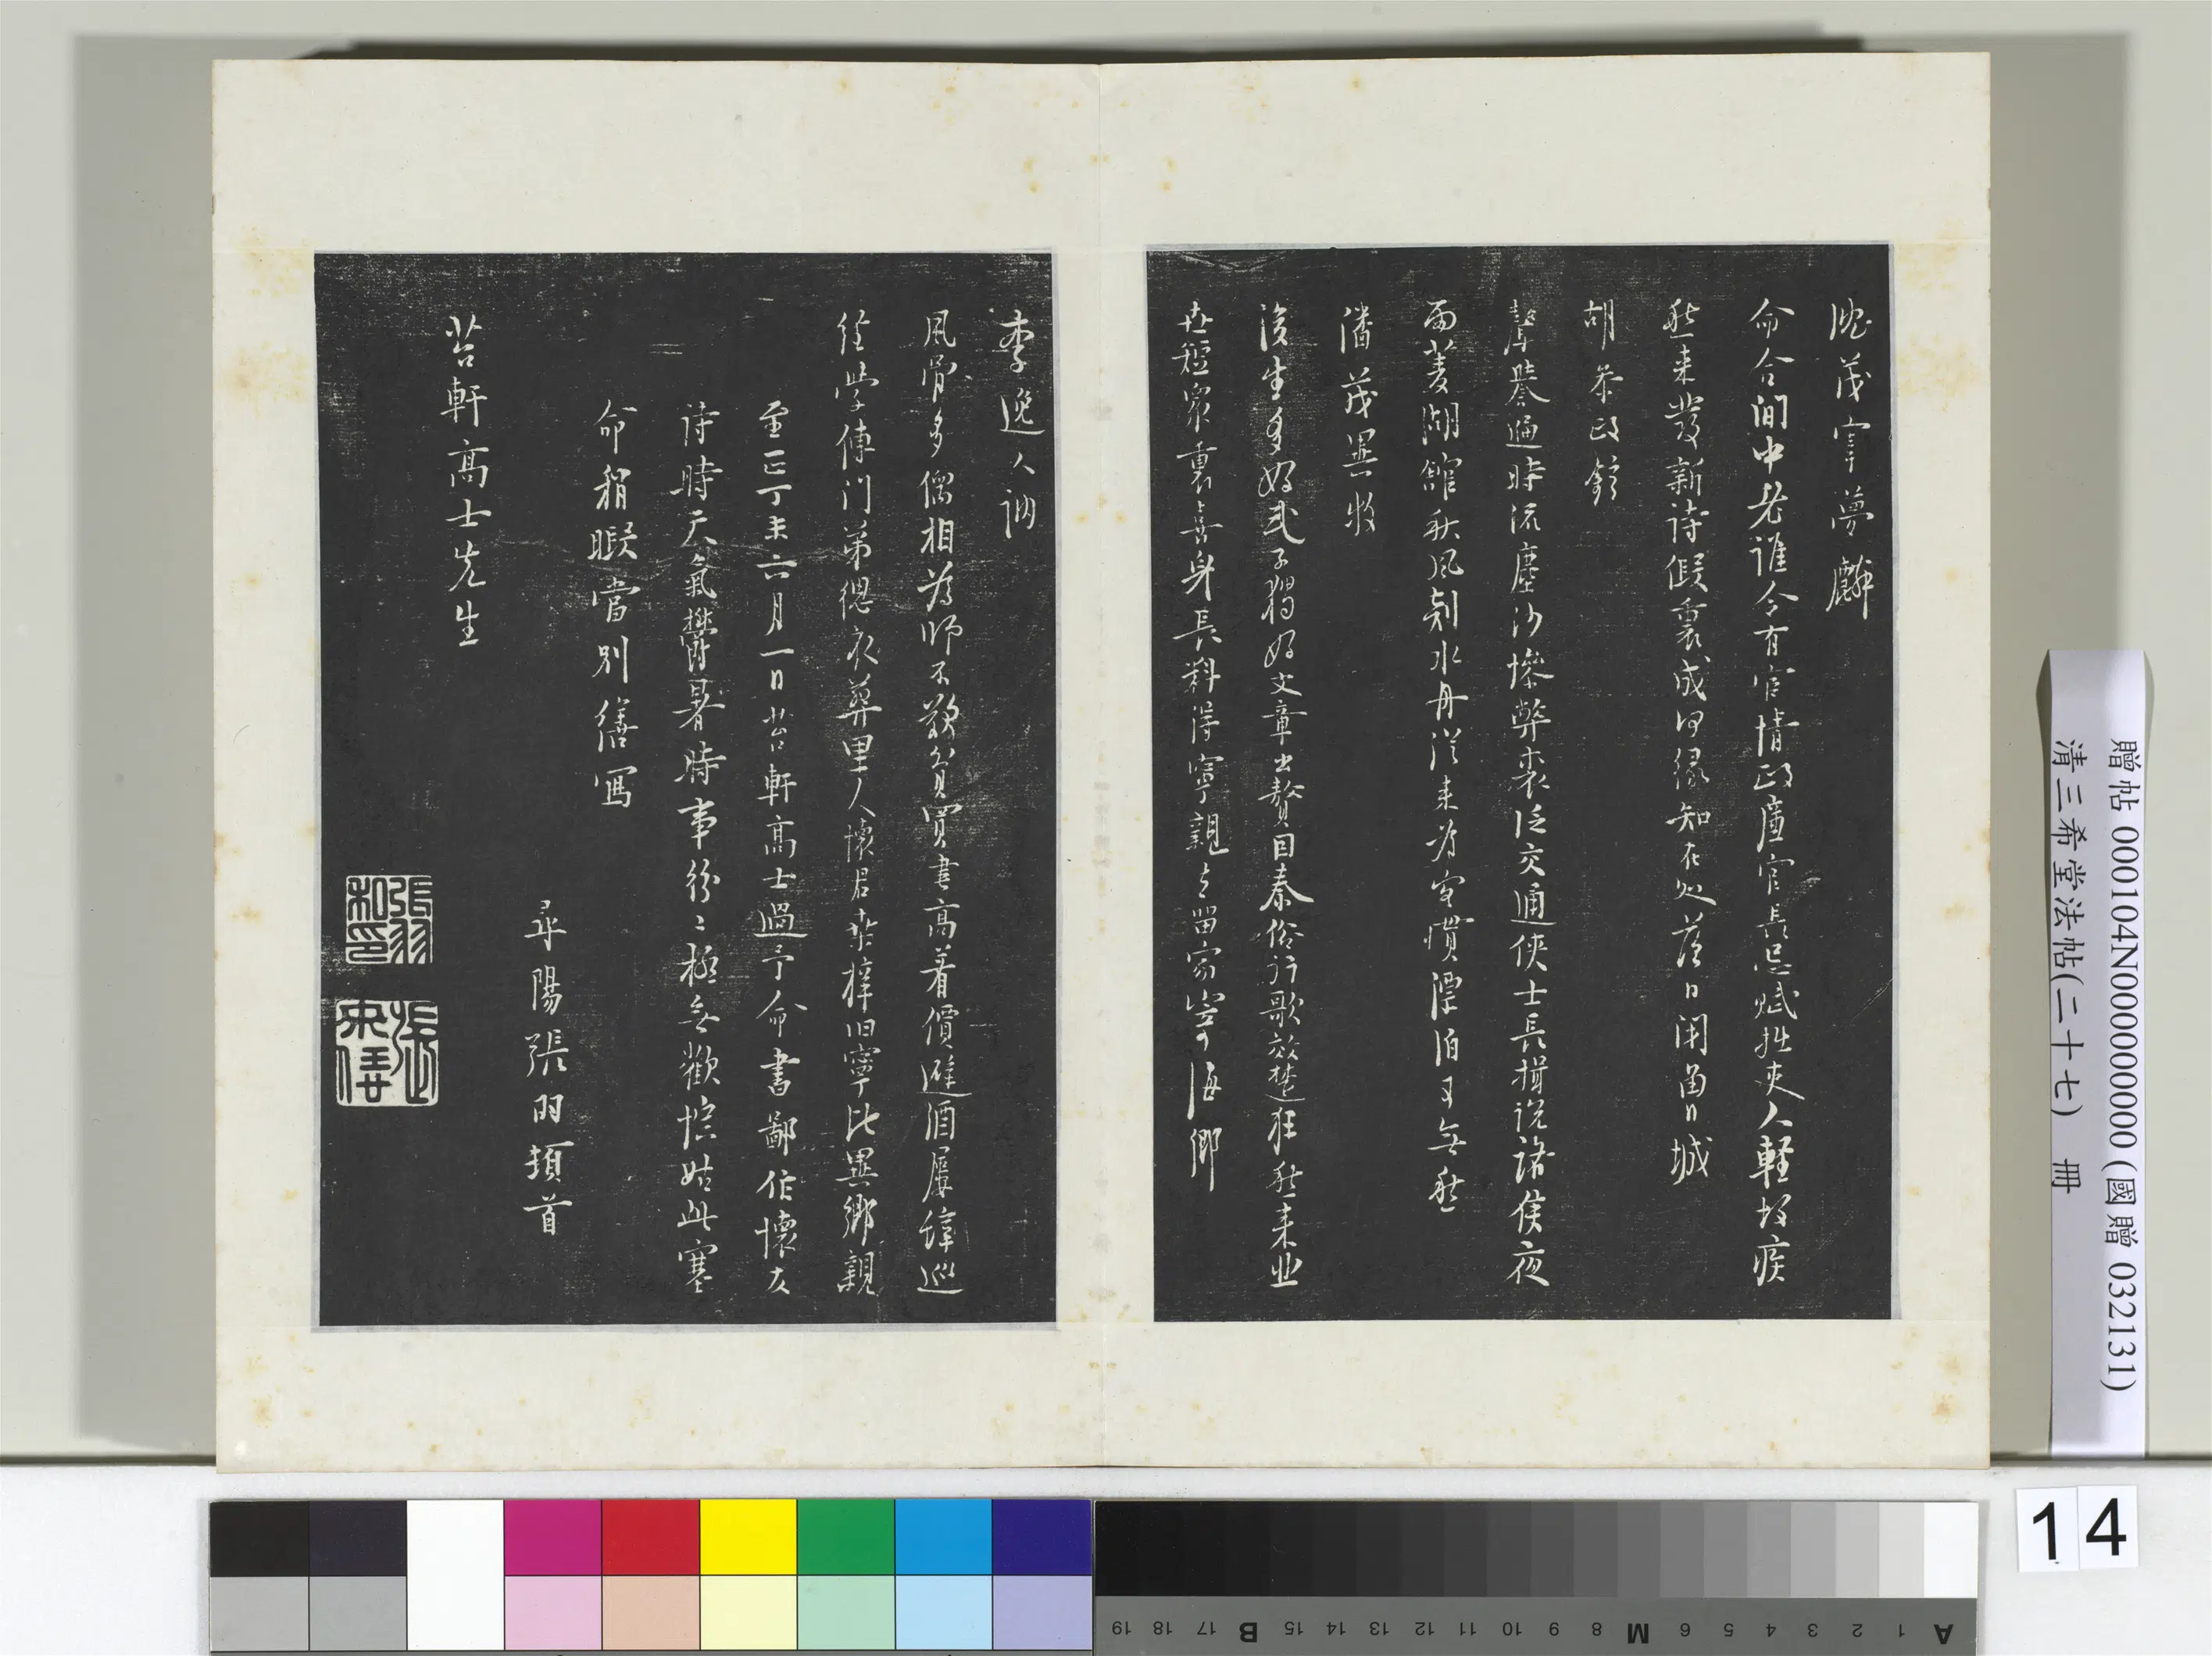 沈茂宰夢麟
命合間中老誰令有宦情政廉官長忌賦拙吏人輕放疾
然來發新詩假裏成何緣知在處落日閉
城
胡參政鉉
聲譽遍時流塵沙慘弊裘泛交通俠士長揖説諸侯夜
雨菱湖館秋風剡水舟從來為客慣漂泊
潘茂異牧
後生多好武子獨好文章出贅因秦俗行歌效楚狂
長料得寧親去留家寄海鄉
李逸人訥
風骨多儒相為師不歎貧買書高著價避酒屢
巡
經學傳門弟
衣葬里人懷君桑梓旧寧比異鄉親
至正丁未六月一日苕軒高士過予命書鄙作懷友
詩時天氣鬱暑時事紛々極無歡悰姑此塞
命稍暇當別繕寫
尋陽張羽頓首
苕軒高士先生
張羽私印
贈帖 000104N000000000 (國贈 032131)
清三希堂法帖(二十七) 冊
14
A 1 2 3 4 5 6 M 8 9 10 11 12 13 14 15 B 17 18 19